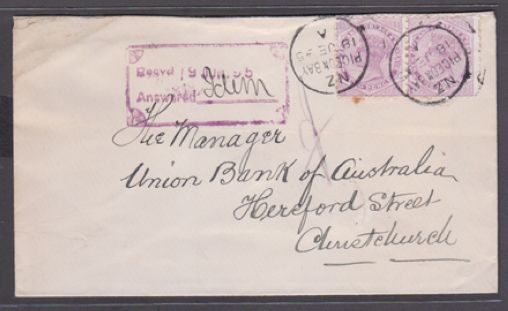 Recvd 19 JUN 95
Answered Idem
PIGEON BAY
NZ
18 JE 95
A
PIGEON BAY
NZ
18 JE
A
The Manager
Union Bank of Australia
Hereford Street
Christchurch